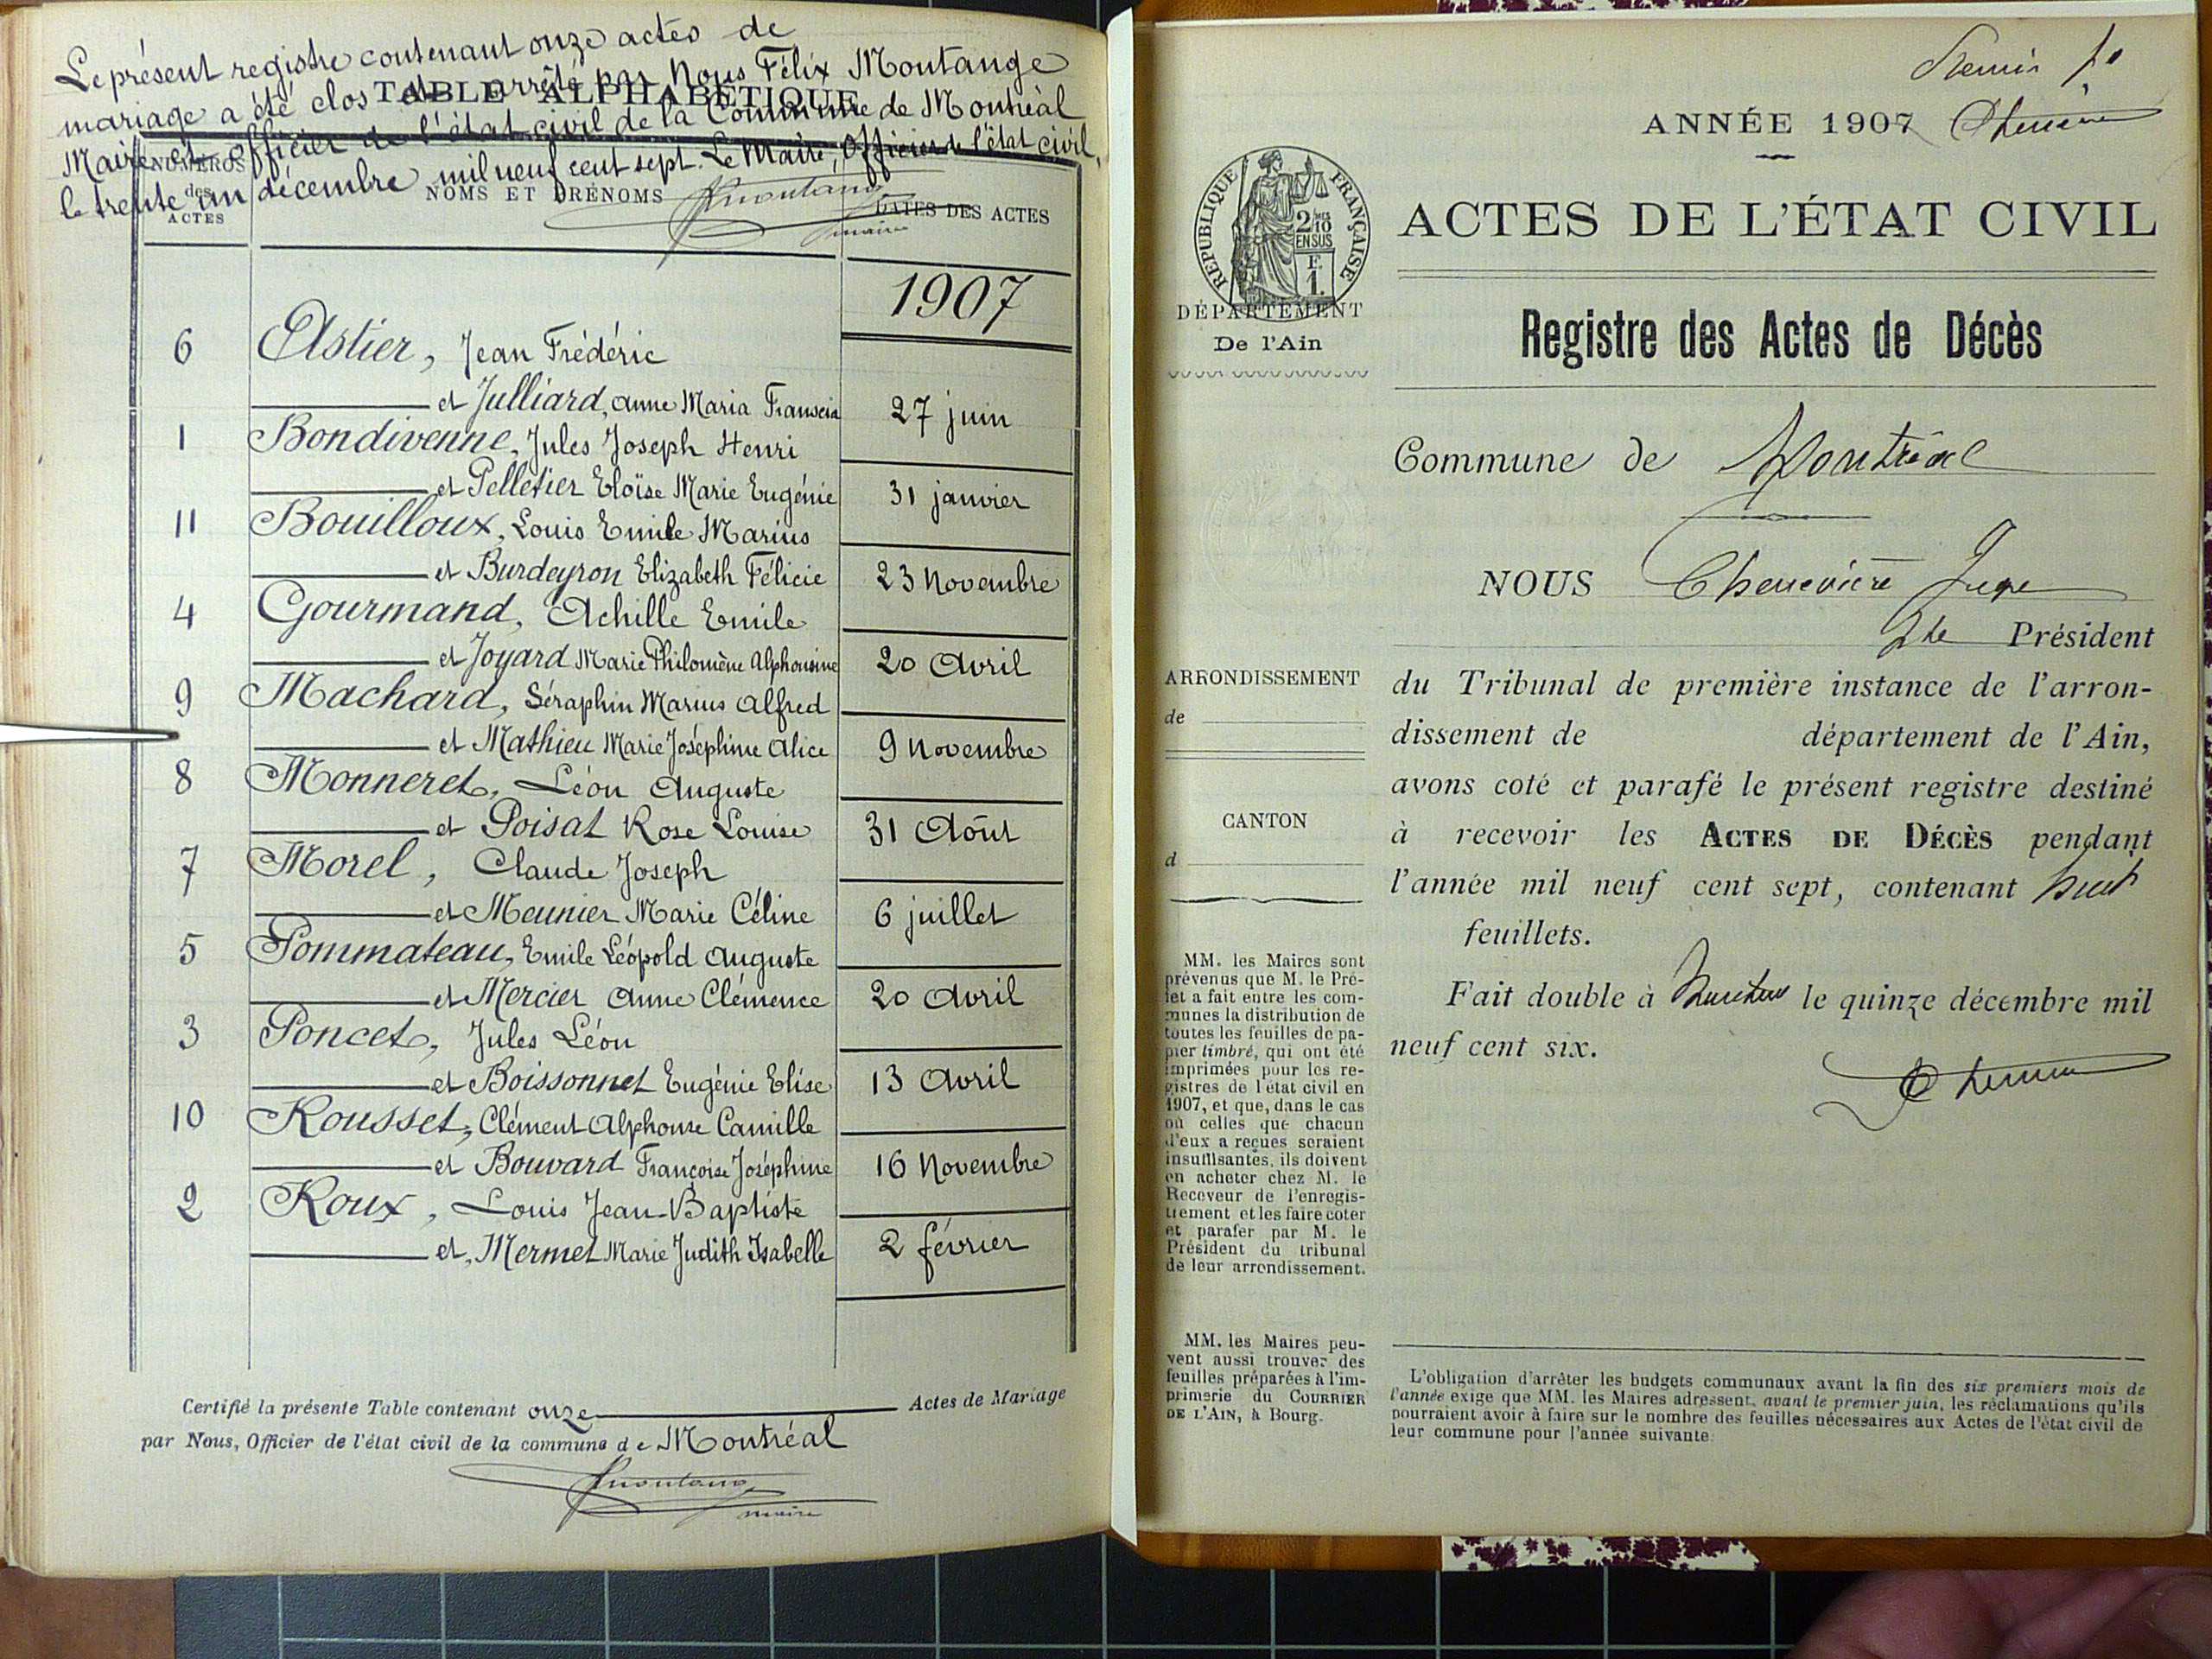 Le présent registre contenant onze actes de
mariage a été clos et arrêté par Nous Félix Moutange
TABLE ALPHABÉTIQUE
Maire et officier de l'état civil de la Commune de Montréal
le trente un décembre mil neuf cent sept. Le Maire, Officier de l'état civil,
NUMÉROS
des
ACTES
NOMS ET PRÉNOMS
DATES DES ACTES
maire
1907
6 Astier, Jean Frédéric
et Julliard, Anne Maria Franscia 27 juin
1 Bondivenne, Jules Joseph Henri
et Pelletier Eloïse Marie Eugénie 31 janvier
11 Bouilloux, Louis Emile Marius
et Burdeyron Elizabeth Félicie 23 Novembre
4 Gourmand, Achille Emile
et Joyard Marie Philomène Alphonsine 20 Avril
9 Machard, Séraphin Marius Alfred
et Mathieu Marie Joséphine Alice 9 Novembre
8 Monneret, Léon Auguste
et Poisat Rose Louise 31 Août
7 Morel, Claude Joseph
et Meunier Marie Céline 6 juillet
5 Pommateau, Emile Léopold Auguste
et Mercier Anne Clémence 20 Avril
3 Poncet, Jules Léon
et Boissonnet Eugénie Elise 13 Avril
10 Rousset, Clément Alphonse Camille
et Bouvard Françoise Joséphine 16 Novembre
2 Roux, Louis Jean-Baptiste
et Mermet Marie Judith Isabelle 2 février
Certifié la présente Table contenant onze Actes de Mariage
par Nous, Officier de l'état civil de la commune de Montréal
maire
ANNÉE 1907
RÉPUBLIQUE FRANÇAISE
2/10
EN SUS
F.
1.
ACTES DE L'ÉTAT CIVIL
DÉPARTEMENT
De l'Ain
Registre des Actes de Décès
Commune de Montréal
NOUS Chenevière Juge
Président
ARRONDISSEMENT
de
CANTON
d
du Tribunal de première instance de l'arron-
dissement de département de l'Ain,
avons coté et parafé le présent registre destiné
à recevoir les ACTES DE DÉCÈS pendant
l'année mil neuf cent sept, contenant huit
feuillets.
Fait double à Nantua le quinze décembre mil
neuf cent six.
MM. les Maires sont
prévenus que M. le Pré-
fet a fait entre les com-
munes la distribution de
toutes les feuilles de pa-
pier timbré, qui ont été
imprimées pour les re-
gistres de l'état civil en
1907, et que, dans le cas
où celles que chacun
d'eux a reçues seraient
insuffisantes, ils doivent
en acheter chez M. le
Receveur de l'enregis-
trement et les faire coter
et parafer par M. le
Président du tribunal
de leur arrondissement.
MM. les Maires peu-
vent aussi trouver des
feuilles préparées à l'im-
primerie du COURRIER
DE L'AIN, à Bourg.
L'obligation d'arrêter les budgets communaux avant la fin des six premiers mois de
l'année exige que MM. les Maires adressent, avant le premier juin, les réclamations qu'ils
pourraient avoir à faire sur le nombre des feuilles nécessaires aux Actes de l'état civil de
leur commune pour l'année suivante.